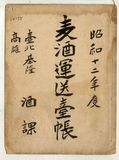 昭和十二年度
麦酒運送臺帳
臺北基隆
高雄
酒課